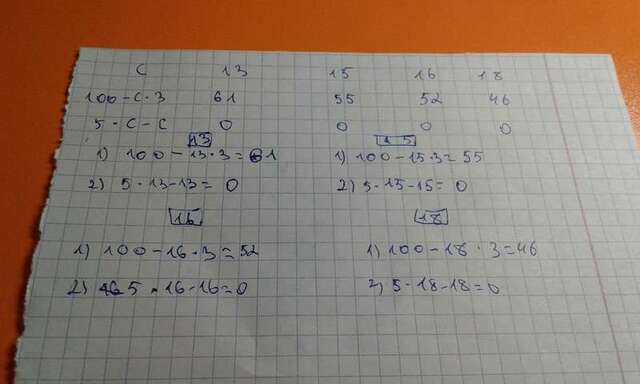 С 13 15 16 18
100 - С · 3 61 55 52 46
5 · С - С 0 0 0 0
13 15
1) 100 - 13 · 3 = 61 1) 100 - 15 · 3 = 55
2) 5 · 13 - 13 = 0 2) 5 · 15 - 15 = 0
16 18
1) 100 - 16 · 3 = 52 1) 100 - 18 · 3 = 46
2) 5 · 16 - 16 = 0 2) 5 · 18 - 18 = 0